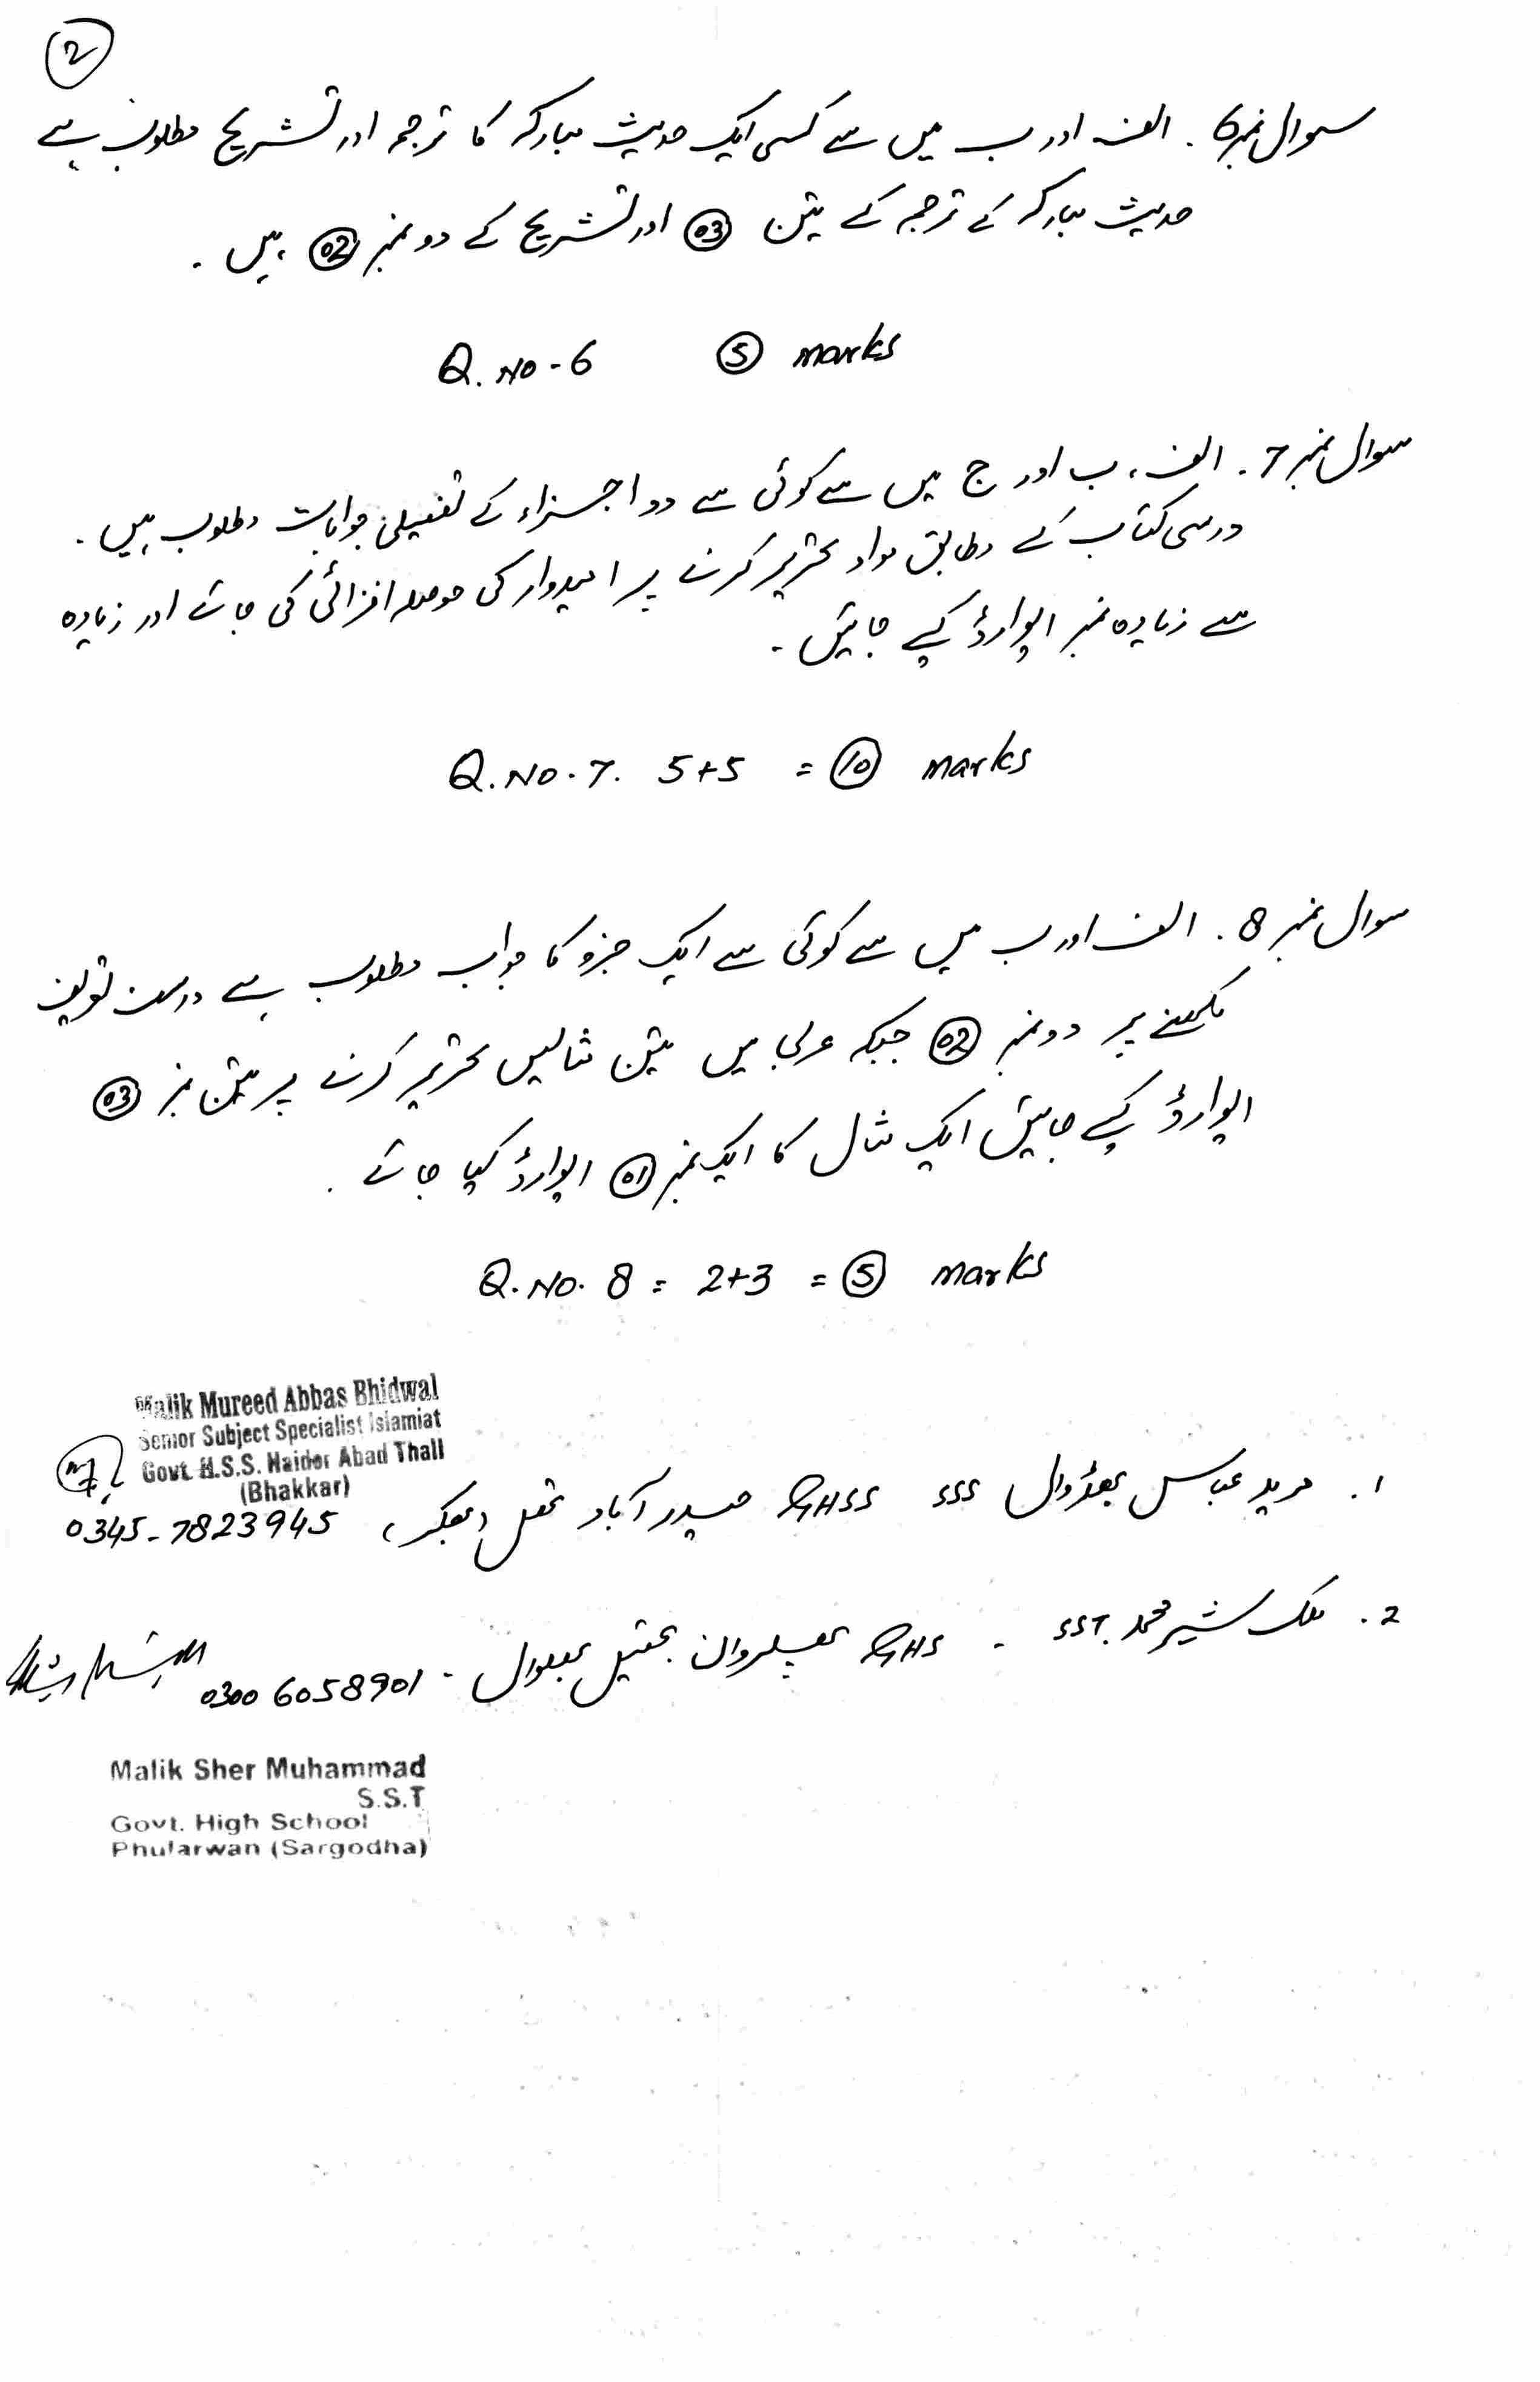 2
سوال نمبر 6. الف اور ب میں سے کسی ایک حدیث مبارکہ کا ترجمہ اور تشریح مطلوب ہے
حدیث مبارکہ کے ترجمہ کے تین 03 اور تشریح کے دو نمبر 02 ہیں.
Q. No-6 5 marks
سوال نمبر 7. الف، ب اور ج میں سے کوئی سے دو اجزاء کے تفصیلی جوابات مطلوب ہیں.
درسی کتاب کے مطابق مواد تحریر کرنے پر امیدوار کی حوصلہ افزائی کی جائے اور زیادہ
سے زیادہ نمبر ایوارڈ کیے جائیں.
Q. No. 7. 5+5 = 10 marks
سوال نمبر 8. الف اور ب میں سے کوئی سے ایک جزو کا جواب مطلوب ہے درست تعریف
لکھنے پر دو نمبر 02 جبکہ عربی میں تین مثالیں تحریر کرنے پر تین نمبر 03
ایوارڈ کیے جائیں ایک مثال کا ایک نمبر 01 ایوارڈ کیا جائے.
Q. No. 8 = 2+3 = 5 marks
Malik Mureed Abbas Bhidwal
Senior Subject Specialist Islamiat
Govt. H.S.S. Haider Abad Thall
(Bhakkar)
1. مرید عباس بھڈوال SSS GHSS حیدر آباد تھل (بھکر) 0345-7823945
2. ملک شیر محمد SST. - GHS پھلروان تحصیل بھلوال - 0300 6058901
Malik Sher Muhammad
S.S.T
Govt. High School
Phularwan (Sargodha)